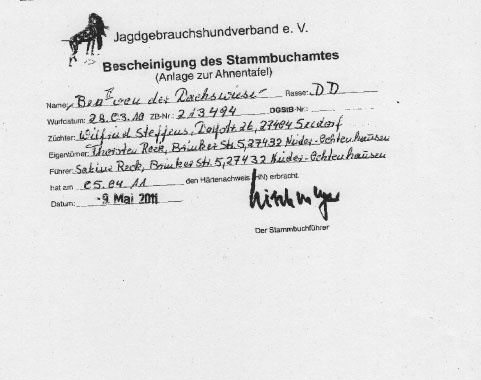 Jagdgebrauchshundverband e. V.
Bescheinigung des Stammbuchamtes
(Anlage zur Ahnentafel)
Name: Ben II von der Dachswiese Rasse: DD
Wurfdatum: 28.03.10 ZB-Nr.: 213494 DGStB-Nr.:
Züchter: Wilfried Steffens, 26, 27404 Seedorf
Eigentümer: Thorsten Reck, Brinker Str. 5, 27432 Hinder-Ochtenhausen
Führer: Sabine Reck, Brinker Str. 5, 27432 Hinder-Ochtenhausen
hat am 05.04.11 den Härtenachweis (HN) erbracht.
Datum: -9. Mai 2011
Der Stammbuchführer